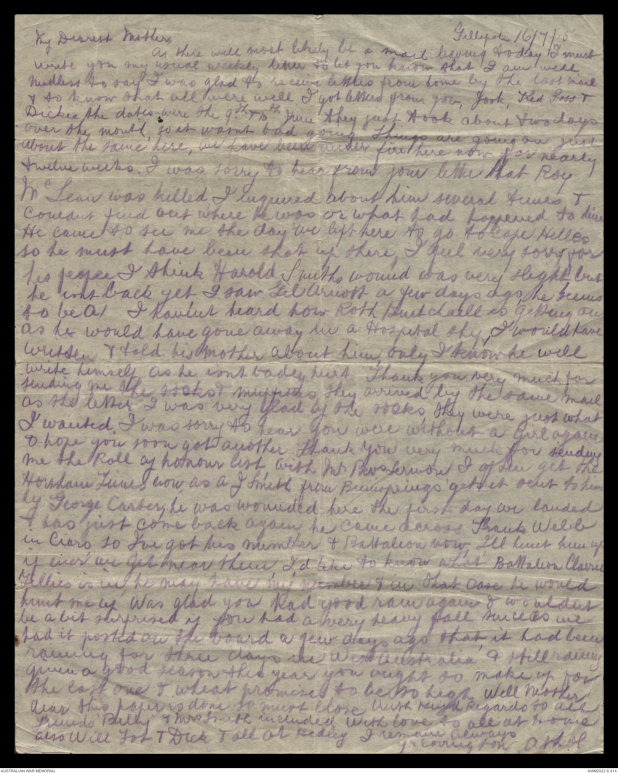 My Dearest Mother Gallipoli 16/7/15
As there will most likely be a mail leaving today I must
write you my usual weekly letter to let you know that I am well
needless to say I was glad to receive letters from home by the last mail
& to know that all were well I got letters from you, Jook,
Dickie the dates were the 9th & 10th June they just took about two days
over the month, so it wasnt bad going. Things are going on just
about the same here, we have been under fire here now for nearly
twelve weeks. I was sorry to hear from your letter that Roy
McLean was killed I enquired about him several times &
couldnt find out where he was or what had happened to him
He came to see me the day we left here to go to Cape Helles
so he must have been shot up there, I feel very sorry for
his people I think Harold Smiths wound was very slight but
he isnt back yet I saw Gil Arnott a few days ago, he seems
to be A1 I havent heard how Roth Burchell is getting on
as he would have gone away in a Hospital ship, I would have
written & told his mother about him, only I know he will
write himself as he isnt badly hurt. Thank you very much for
sending me the socks & mufflers they arrived by the same mail
as the letter I was very glad of the socks, they were just what
I wanted. I was sorry to hear you were without a girl again
& hope you soon got another Thank you very much for sending
me the Roll of honour list, with Mr sermon I often get the
Horsham Times now as a J Smith from gets it sent to him
by George Carter, he was wounded here the first day we landed
& has just come back again, he came across Frank Webb
in Cairo so Ive got his number & Battalion now, I'll hunt him up
if ever we get near them I'd like to know what Battalion
is in he may have my number & in that case he would
hunt me up Was glad you had good rain again & wouldnt
be a bit surprised if you had a very heavy fall since as we
had it posted on the board a few days ago that it had been
raining for three days in West Australia & still raining
given a good season this year you ought to make up for
the last one & wheat promises to be so high, Well Mother
dear this paper is done so must close With kind regards to all
friends Billy & Mrs Smith included with love to all at home
also Will & Dick & all at I remain always
yr loving son